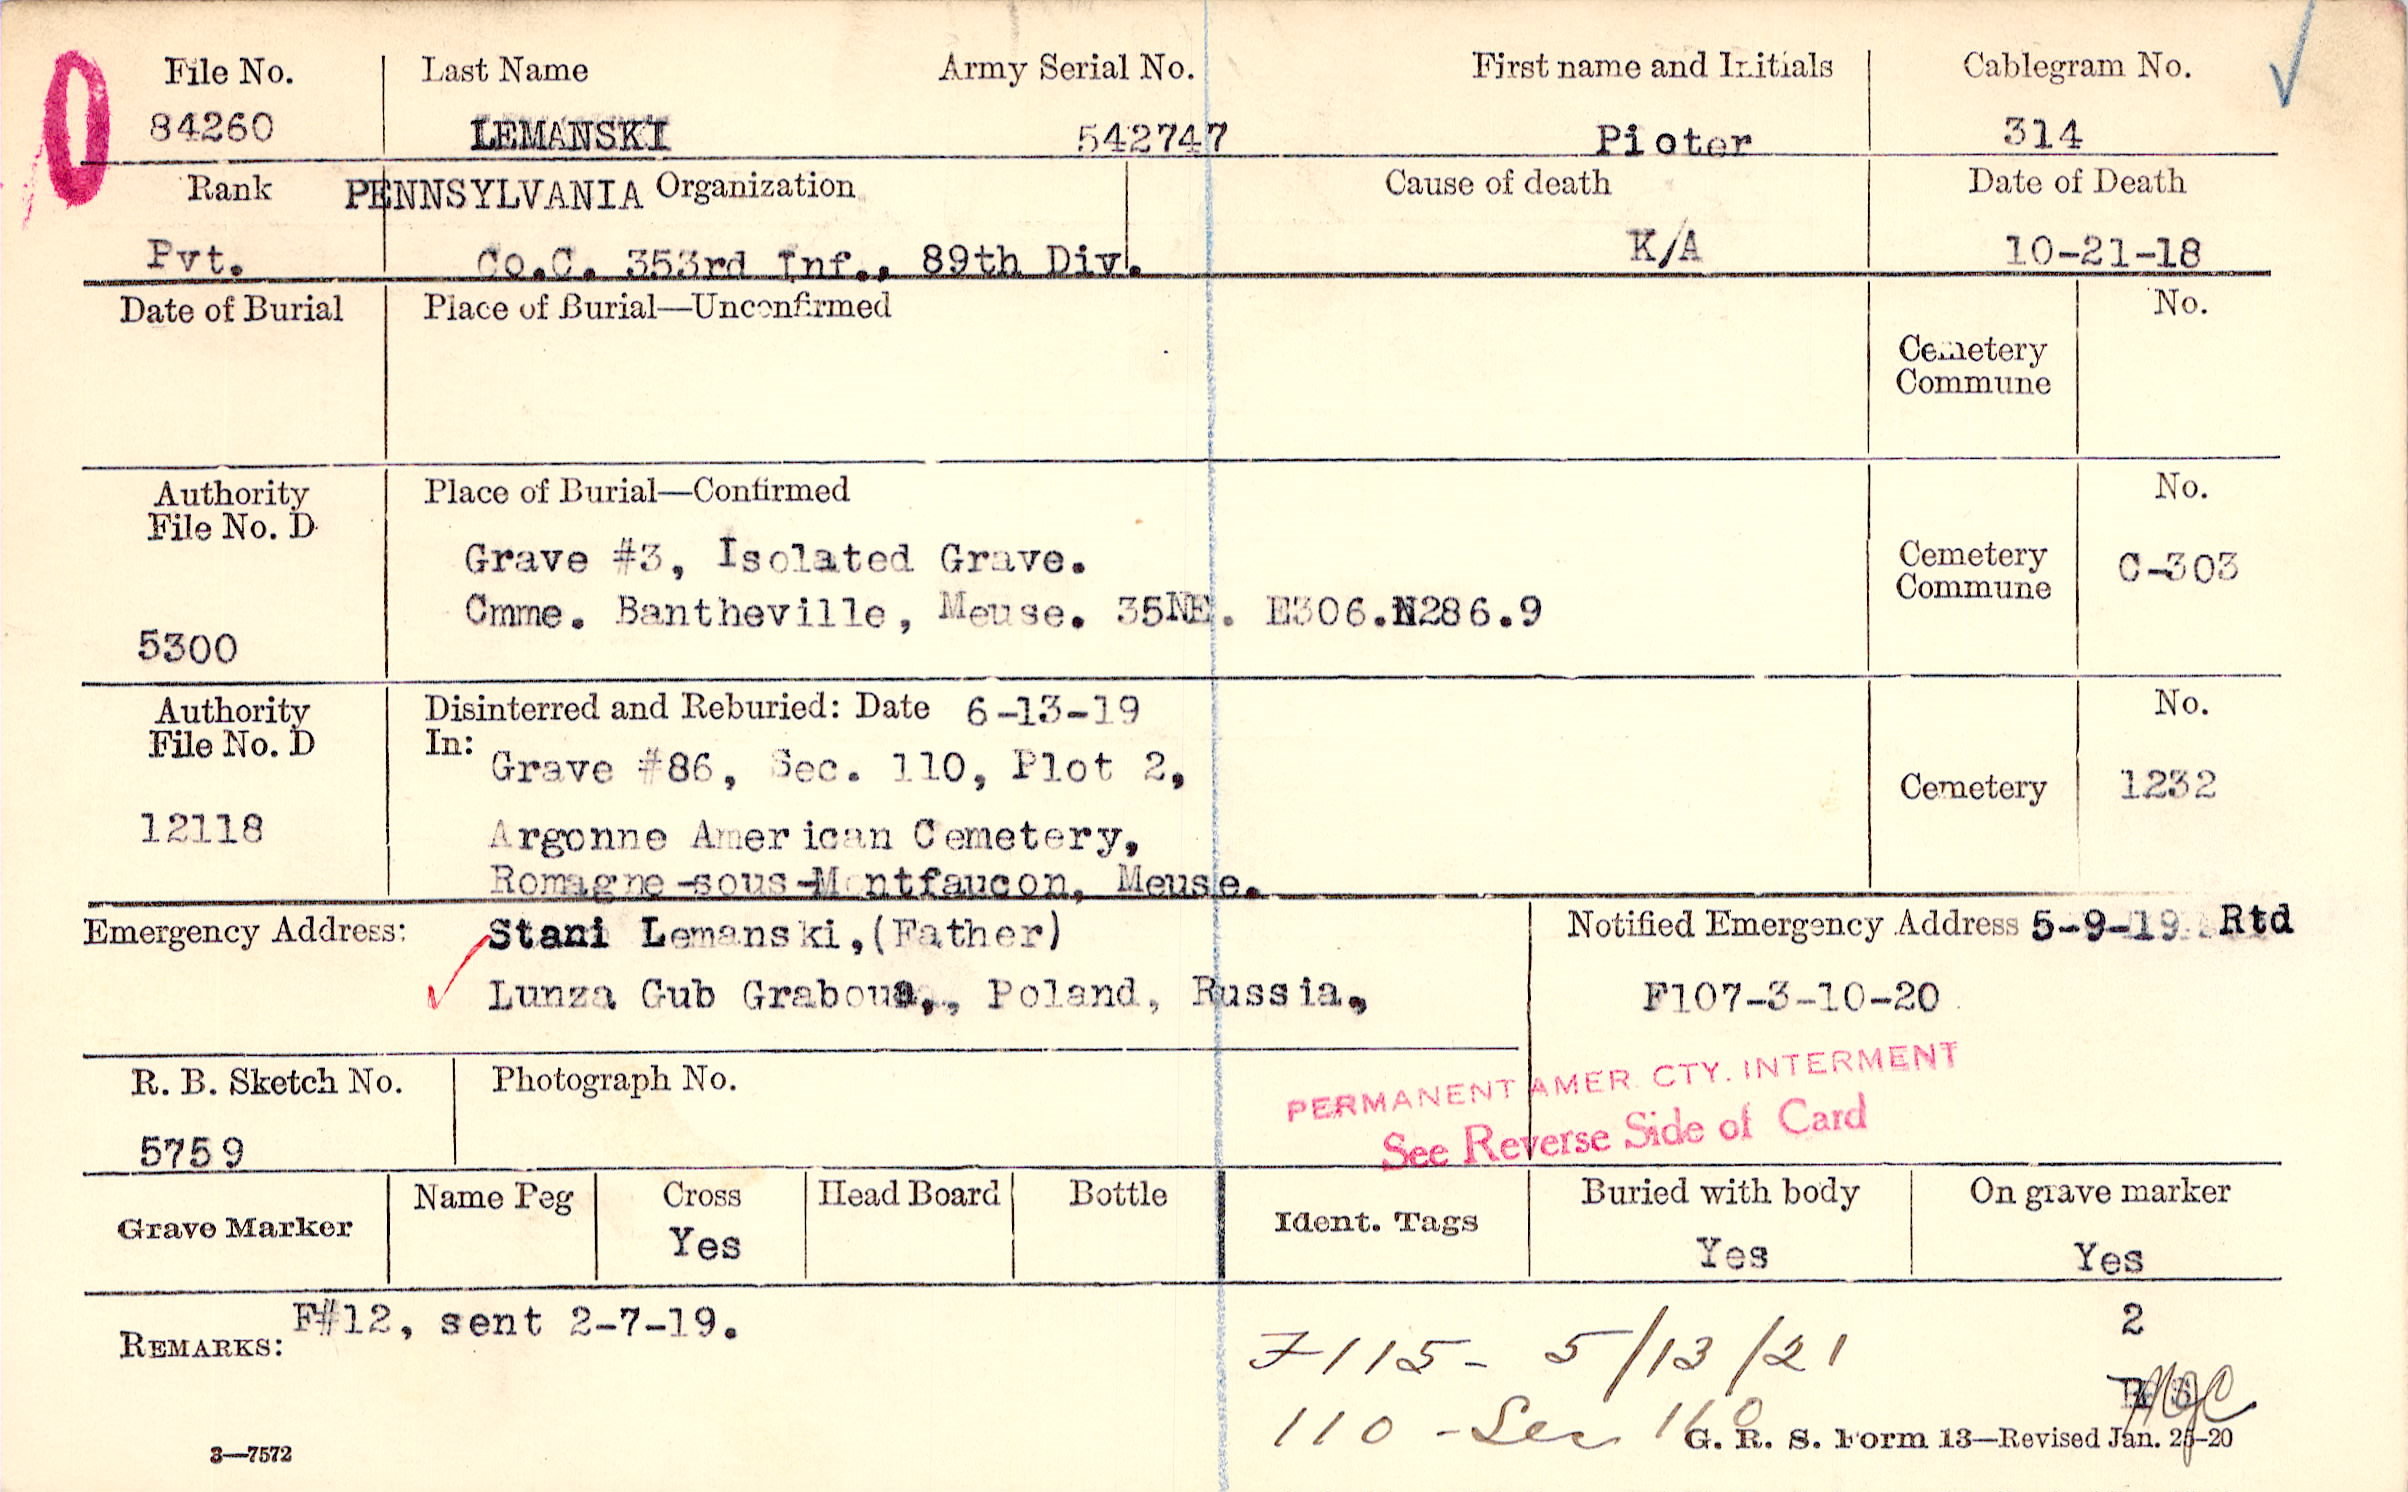 File No. Last Name Army Serial No. First name and Initials Cablegram No.
84260 LEMANSKI 542747 Pioter 314
Rank PENNSYLVANIA Organization Cause of death Date of Death
Pvt. Co.C. 353rd Inf., 89th Div. K/A 10-21-18
Date of Burial Place of Burial—Unconfirmed No.
Cemetery
Commune
Authority Place of Burial—Confirmed No.
File No. D
Grave #3, Isolated Grave. Cemetery
Commune C-303
Cmme. Bantheville, Meuse. 35NE. E306.N286.9
5300
Authority Disinterred and Reburied: Date 6-13-19 No.
File No. D In:
Grave #86, Sec. 110, Plot 2, Cemetery 1232
12118 Argonne American Cemetery,
Romagne-sous-Montfaucon, Meuse.
Emergency Address: Stani Lemanski,(Father) Notified Emergency Address 5-9-19 Rtd
Lunza Gub Graboua,, Poland, Russia, F107-3-10-20
R. B. Sketch No. Photograph No. PERMANENT AMER. CTY. INTERMENT
See Reverse Side of Card
5759
Name Peg Cross Head Board Bottle Buried with body On grave marker
Grave Marker Ident. Tags
Yes Yes Yes
REMARKS: F#12, sent 2-7-19. 2
F115- 5/13/21
110 - Sec
G. R. S. Form 13—Revised Jan. 25-20
3—7572